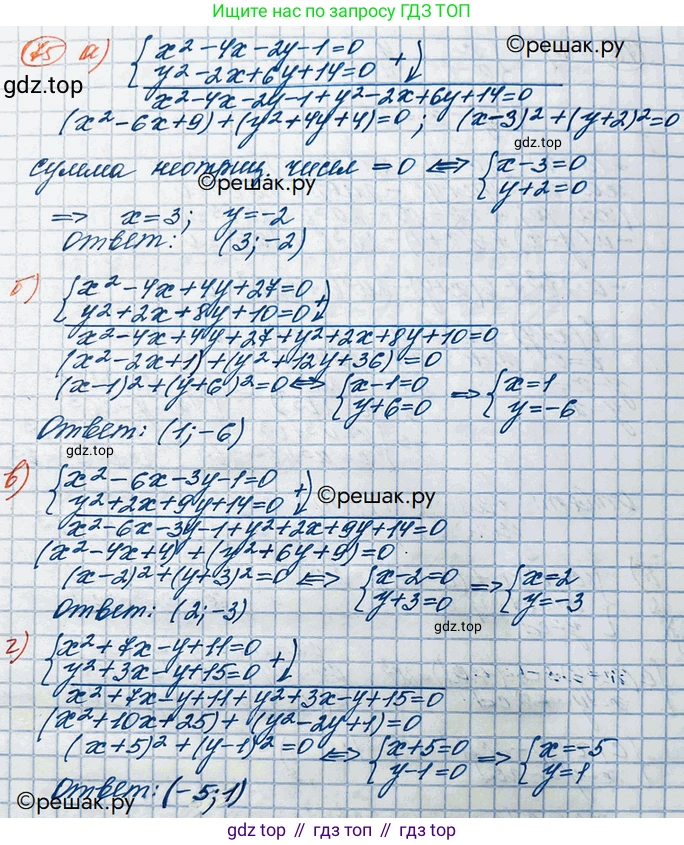 Ищите нас по запросу ГДЗ ТОП
75 а) { x² - 4x - 2y - 1 = 0
y² - 2x + 6y + 14 = 0 +
©решак.ру
gdz.top
x² - 4x - 2y - 1 + y² - 2x + 6y + 14 = 0
(x² - 6x + 9) + (y² + 4y + 4) = 0 ; (x - 3)² + (y + 2)² = 0
gdz.top
сумма неотриц. чисел = 0 ⟺ { x - 3 = 0
y + 2 = 0
©решак.ру
⟹ x = 3; y = -2
Ответ: (3; -2)
б) { x² - 4x + 4y + 27 = 0
y² + 2x + 8y + 10 = 0 +
x² - 4x + 4y + 27 + y² + 2x + 8y + 10 = 0
(x² - 2x + 1) + (y² + 12y + 36) = 0
(x - 1)² + (y + 6)² = 0 ⟺ { x - 1 = 0 ⟹ { x = 1
y + 6 = 0 y = -6
Ответ: (1; -6)
gdz.top
в) { x² - 6x - 3y - 1 = 0
y² + 2x + 9y + 14 = 0 +
©решак.ру
x² - 6x - 3y - 1 + y² + 2x + 9y + 14 = 0
(x² - 4x + 4) + (y² + 6y + 9) = 0
(x - 2)² + (y + 3)² = 0 ⟺ { x - 2 = 0 ⟹ { x = 2
y + 3 = 0 y = -3
Ответ: (2; -3)
gdz.top
г) { x² + 7x - y + 11 = 0
y² + 3x - y + 15 = 0 +
x² + 7x - y + 11 + y² + 3x - y + 15 = 0
(x² + 10x + 25) + (y² - 2y + 1) = 0
(x + 5)² + (y - 1)² = 0 ⟺ { x + 5 = 0 ⟹ { x = -5
y - 1 = 0 y = 1
Ответ: (-5; 1)
©решак.ру
gdz top // гдз топ // gdz.top